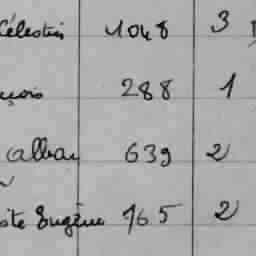 Célestin 1048 3
288 1
alban 639 2
Eugène 765 2